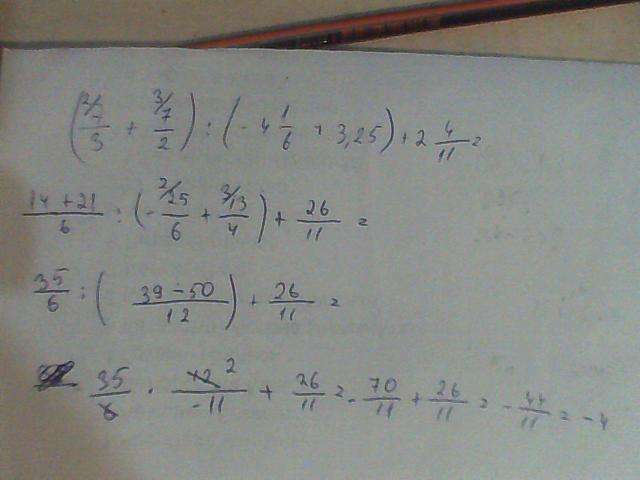 (²⁄7/3 + ³⁄7/2) : (- 4 1/6 + 3,25) + 2 4/11 =
14 + 21/6 : (- ²⁄25/6 + ³⁄13/4) + 26/11 =
35/6 : (39 - 50/12) + 26/11 =
35/6 · 12 2/-11 + 26/11 = - 70/11 + 26/11 = - 44/11 = - 4